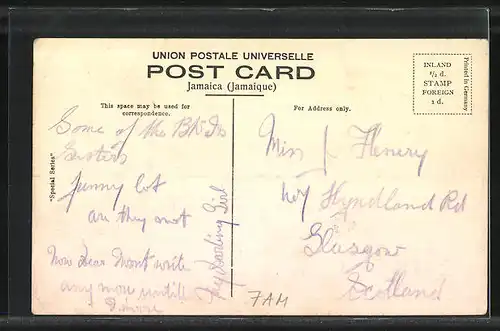 UNION POSTALE UNIVERSELLE
POST CARD
Jamaica (Jamaïque)
INLAND
½ d.
STAMP
FOREIGN
1 d.
Printed in Germany
This space may be used for
correspondence.
For Address only.
"Special Series"
Some of the
Sisters
funny lot
are they not
Now Dear Wont write
any more untill
My Darling Girl
Miss J Flenery
Hyndland Rd
Glasgow
Scotland
7AM